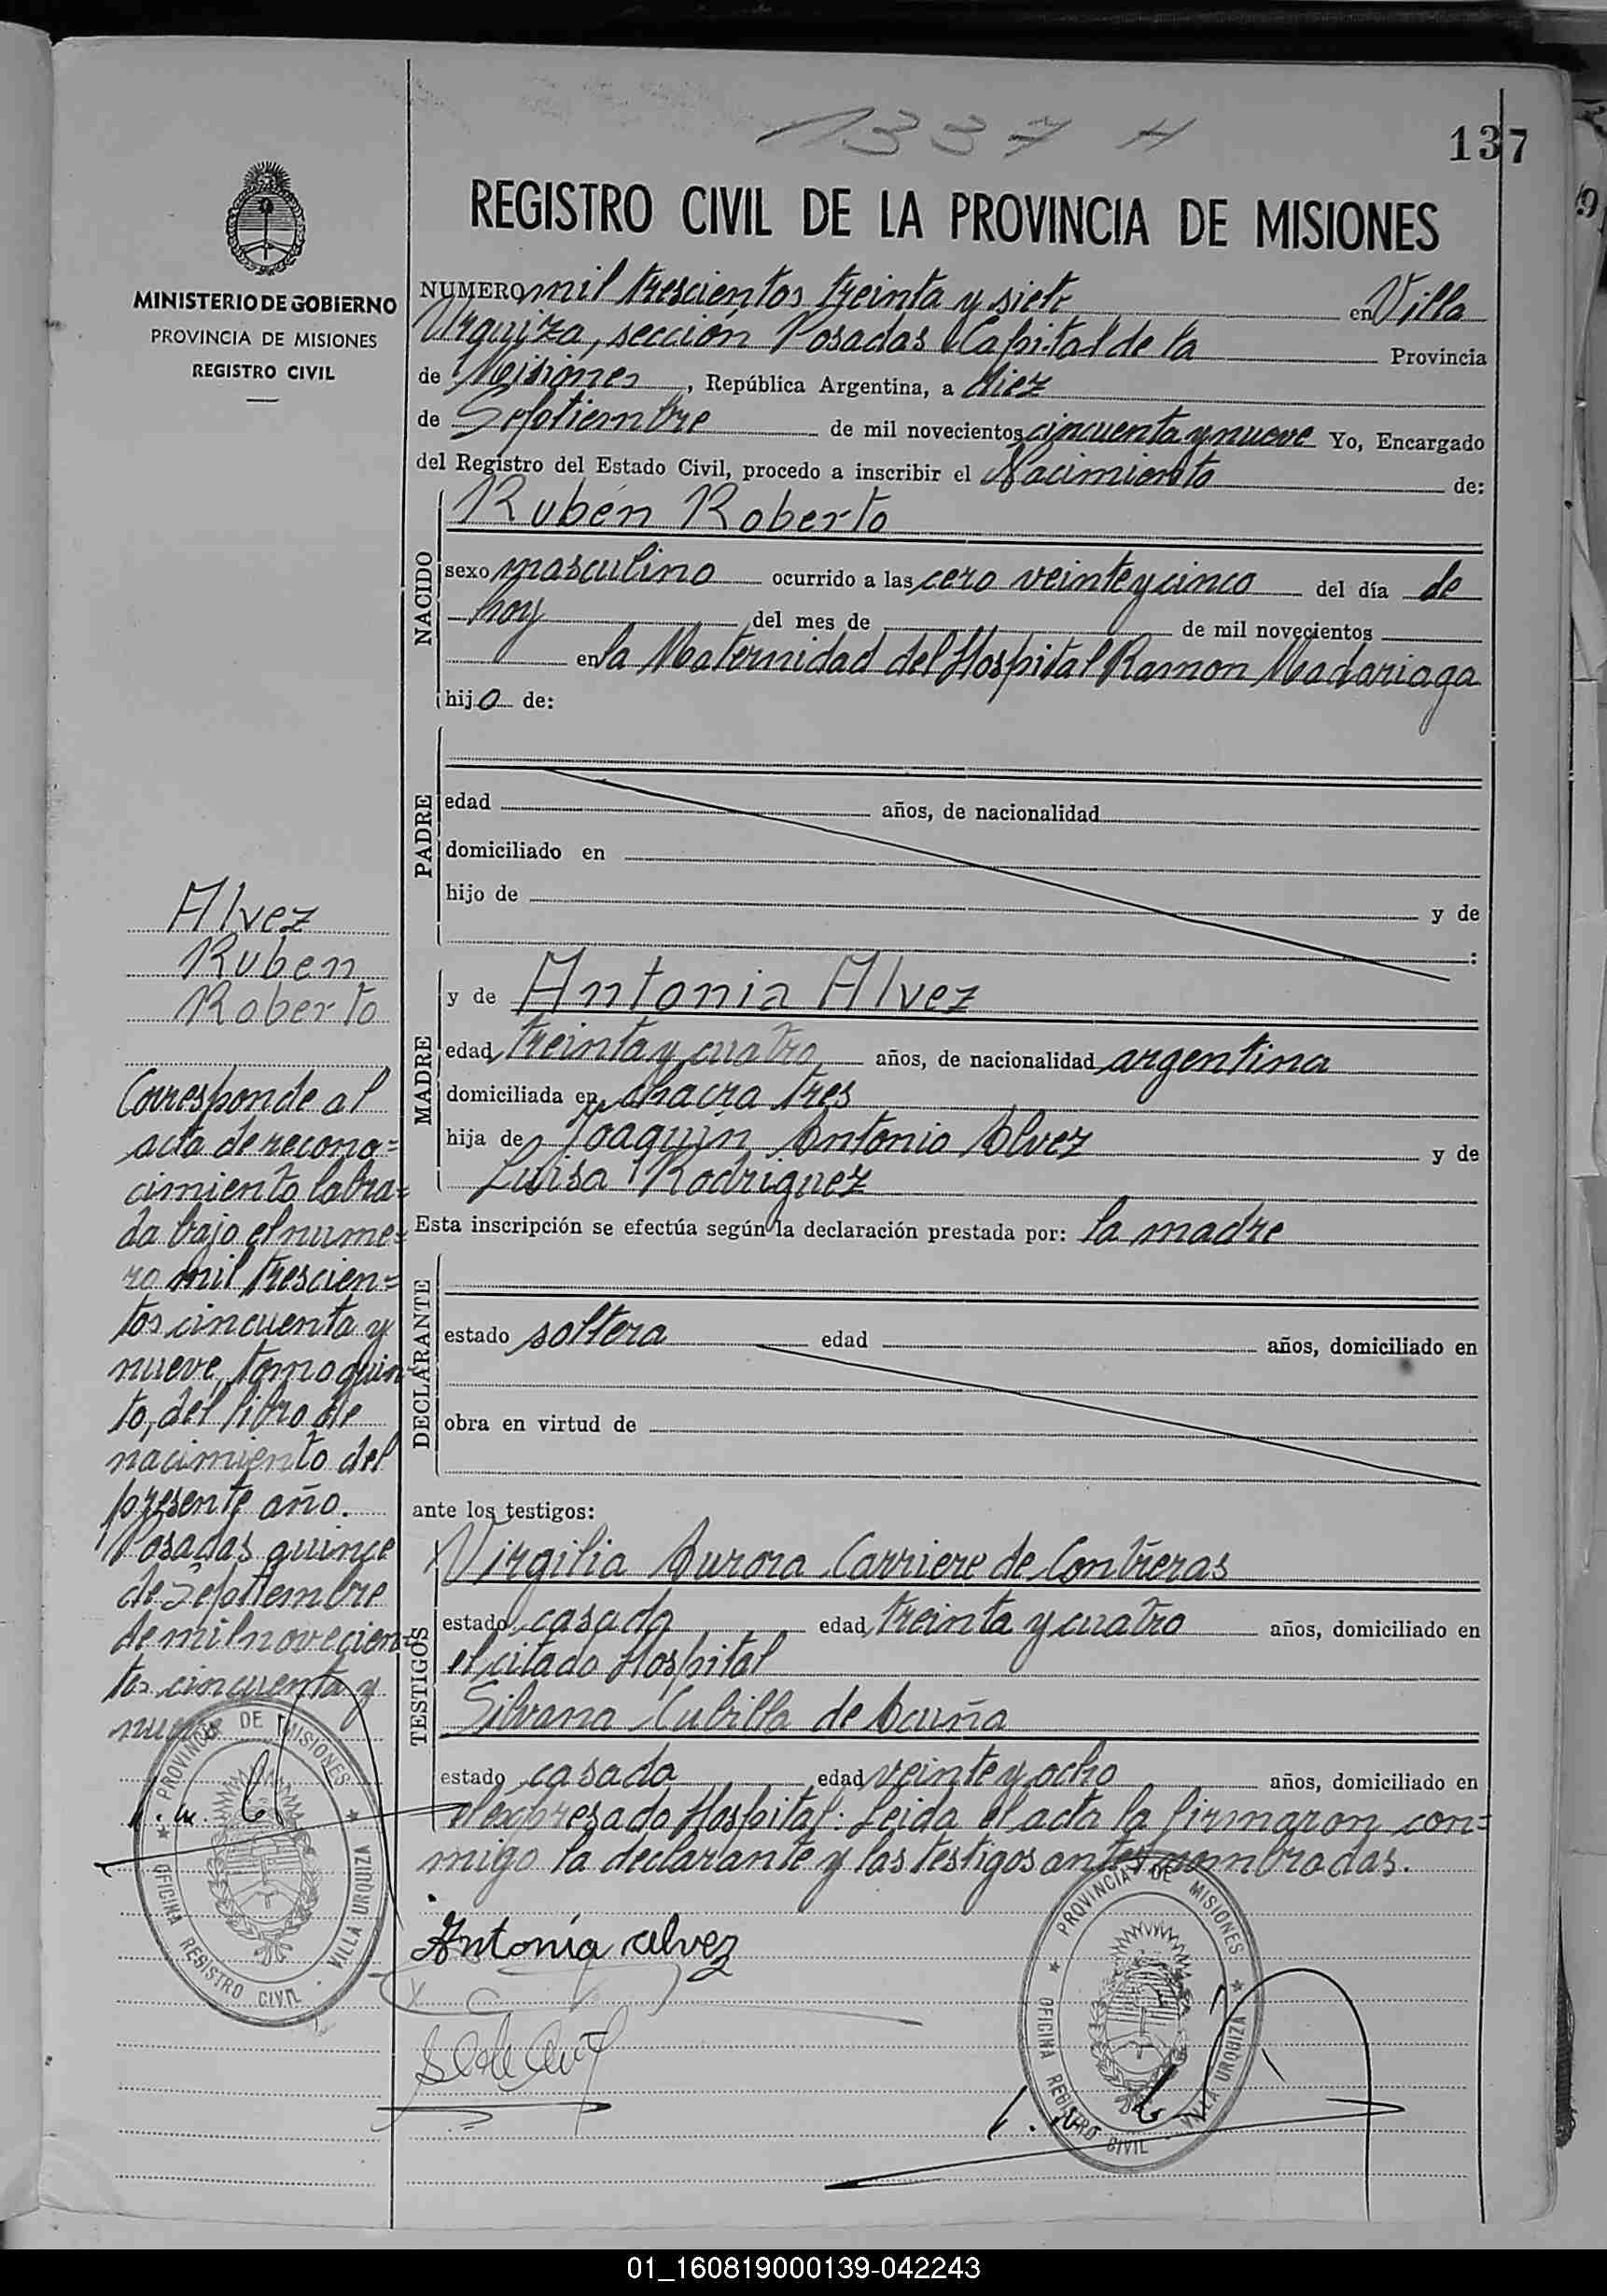 1337 H
137
REGISTRO CIVIL DE LA PROVINCIA DE MISIONES
MINISTERIO DE GOBIERNO
PROVINCIA DE MISIONES
REGISTRO CIVIL
NUMERO mil trescientos treinta y siete en Villa
Urquiza, sección Posadas Capital de la Provincia
de Misiones, República Argentina, a diez
de Septiembre de mil novecientos cincuenta y nueve Yo, Encargado
del Registro del Estado Civil, procedo a inscribir el Nacimiento de:
NACIDO
Rubén Roberto
sexo masculino ocurrido a las cero veinte y cinco del día de
hoy del mes de de mil novecientos
en la Maternidad del Hospital Ramon Madariaga
hijo de:
PADRE
edad años, de nacionalidad
domiciliado en
hijo de y de
:
MADRE
y de Antonia Alvez
edad treinta y cuatro años, de nacionalidad argentina
domiciliada en chacra tres
hija de Joaquin Antonio Alvez y de
Luisa Rodriguez
Esta inscripción se efectúa según la declaración prestada por: la madre
DECLARANTE
estado soltera edad años, domiciliado en
obra en virtud de
ante los testigos:
TESTIGOS
Virgilia Aurora Carriere de Contreras
estado casada edad treinta y cuatro años, domiciliado en
el citado Hospital
Silvana Cubilla de Acuña
estado casada edad veinte y ocho años, domiciliado en
el expresado Hospital: Leida el acta la firmaron con=
migo la declarante y las testigos antes nombradas.
Antonia alvez
PROVINCIA DE MISIONES
OFICINA REGISTRO CIVIL VILLA URQUIZA
Alvez
Ruben
Roberto
Corresponde al
acta de recono=
cimiento labra=
da bajo el nume=
ro mil trescien=
tos cincuenta y
nueve, tomo quin=
to, del libro de
nacimiento del
presente año.
Posadas quince
de Septiembre
de mil novecien=
tos cincuenta y
nueve
PROVINCIA DE MISIONES
OFICINA REGISTRO CIVIL · VILLA URQUIZA
01_160819000139-042243